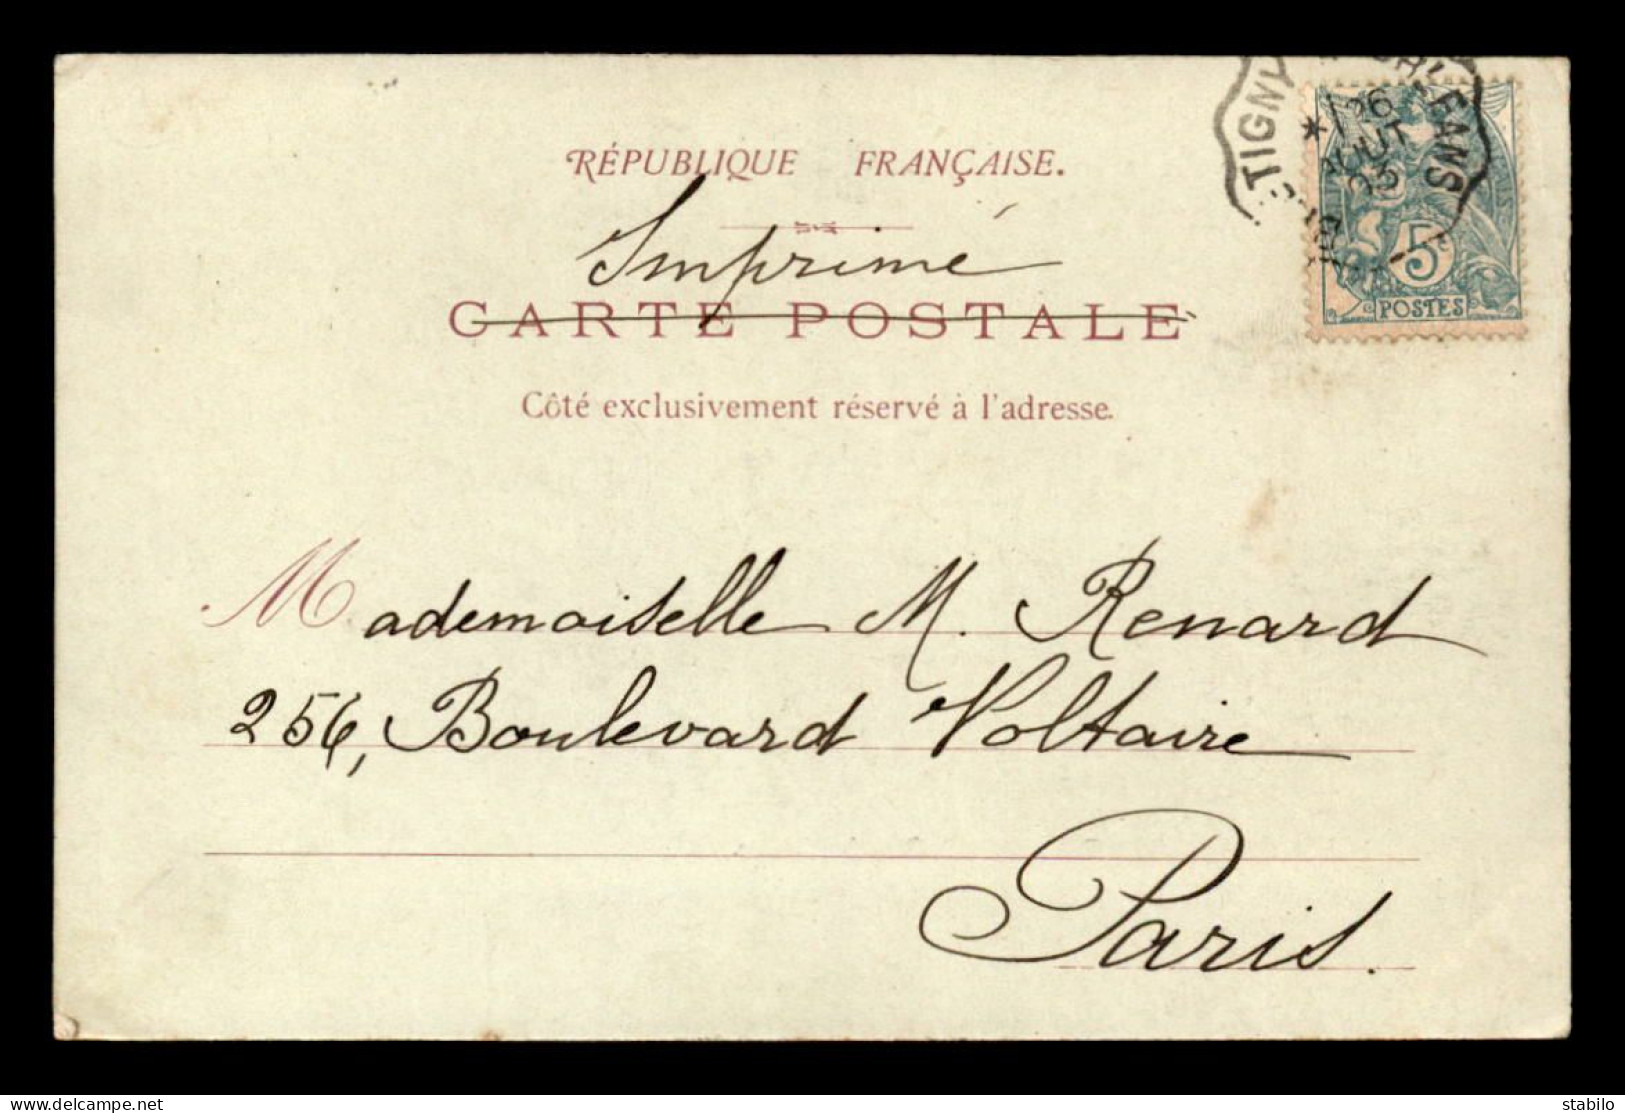 RÉPUBLIQUE FRANÇAISE.
Imprimé
CARTE POSTALE
Côté exclusivement réservé à l'adresse.
26
AOUT
03
5c
POSTES
Mademoiselle M. Renard
256, Boulevard Voltaire
Paris.
https://www.delcampe.net
stabilo